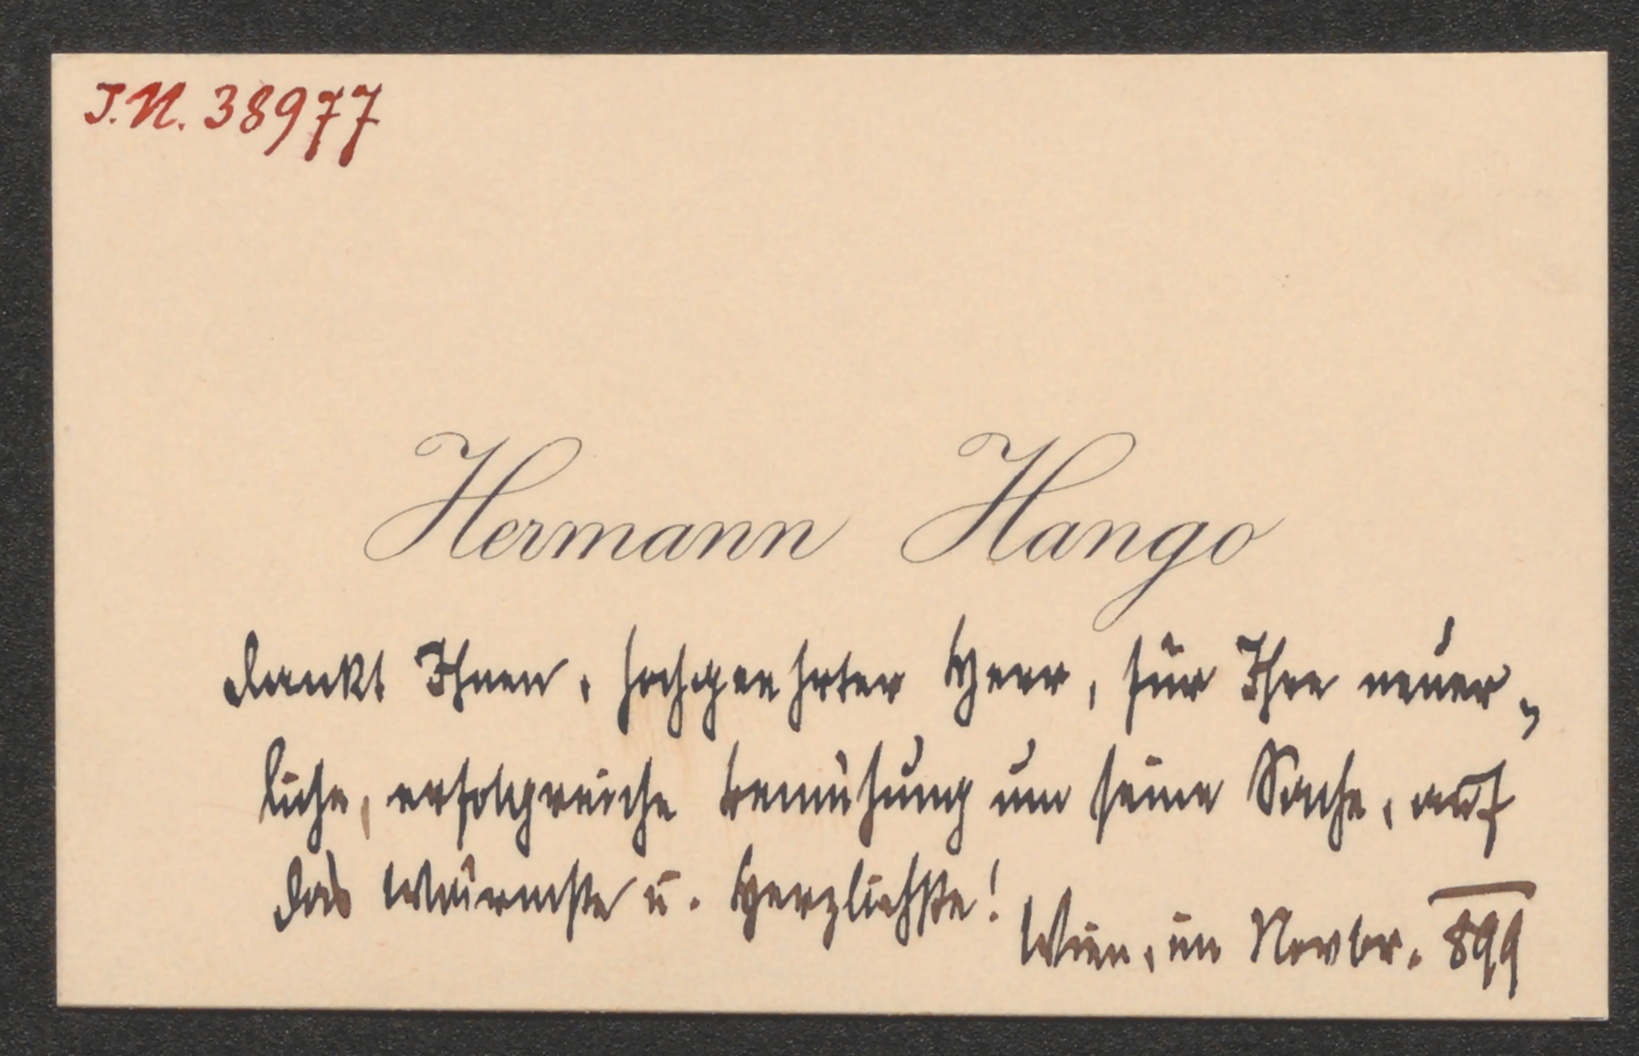 J.N. 38977
Hermann Hango
dankt Ihnen, hochgeehrter Herr, für Ihre neuer„
liche, erfolgreiche Bemühung um seine Sache, auf
das Wärmste u. Herzlichste!
Wien, im Novbr. 899